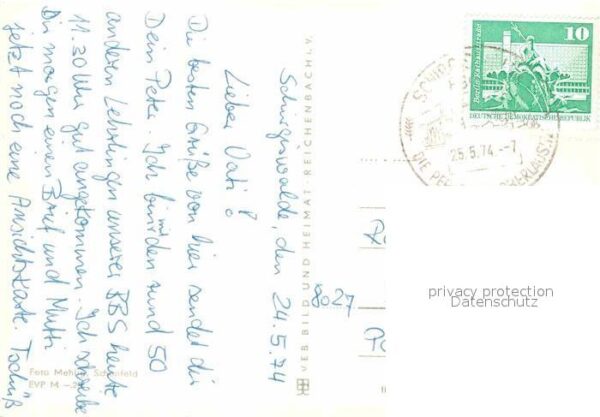 Schirgiswalde, den 24.5.74
Lieber Vati!
Die besten Grüße von hier sendet dir
Dein Peter. Ich bin mit den rund 50
anderen Lehrlingen unserer BBS heute
11.30 Uhr gut angekommen. Ich schreibe
Dir morgen einen Brief und Mutti
jetzt noch eine Ansichtskarte. Tschüß
Foto
EVP M
VEB BILD UND HEIMAT REICHENBACH I. V.
10
Berlin, Rathausstraße
DEUTSCHE DEMOKRATISCHE REPUBLIK
25.5.74.-7
DIE OBERLAUSITZ
8027
privacy protection
Datenschutz